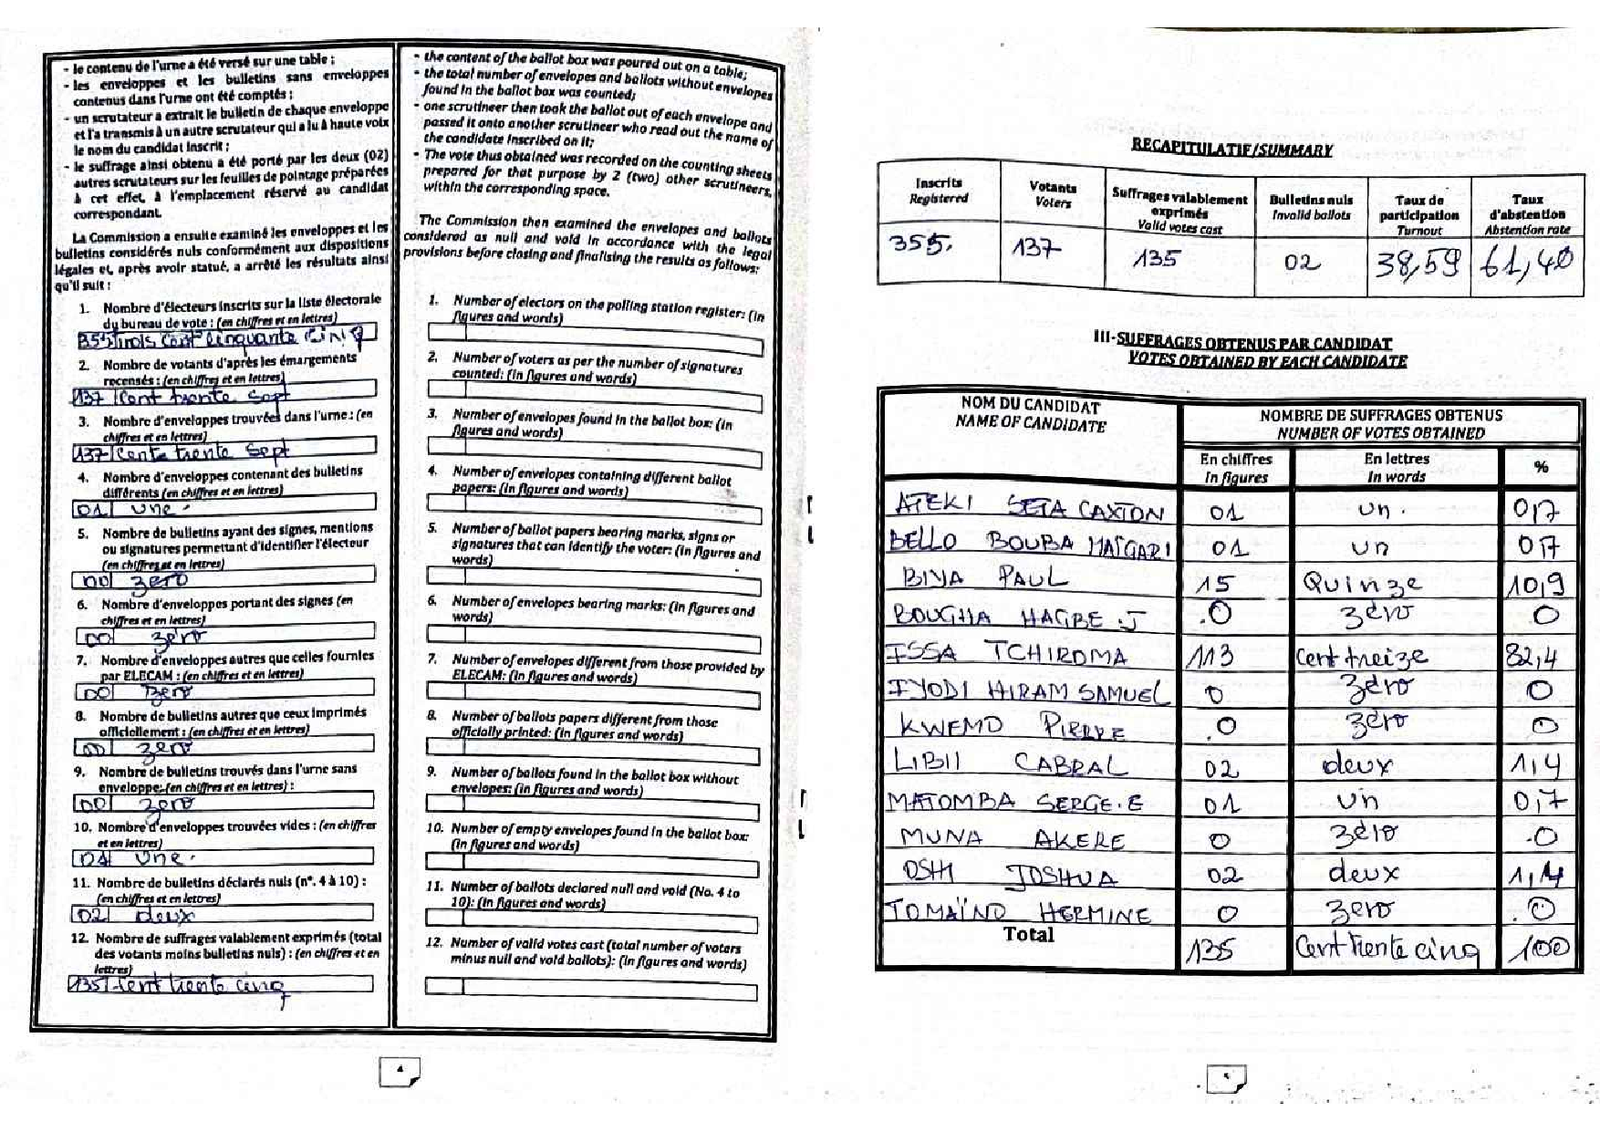 - le contenu de l'urne a été versé sur une table ;
- les enveloppes et les bulletins sans enveloppes
contenus dans l'urne ont été comptés ;
- un scrutateur a extrait le bulletin de chaque enveloppe
et l'a transmis à un autre scrutateur qui a lu à haute voix
le nom du candidat inscrit ;
- le suffrage ainsi obtenu a été porté par les deux (02)
autres scrutateurs sur les feuilles de pointage préparées
à cet effet, à l'emplacement réservé au candidat
correspondant.
La Commission a ensuite examiné les enveloppes et les
bulletins considérés nuls conformément aux dispositions
légales et, après avoir statué, a arrêté les résultats ainsi
qu'il suit :
1. Nombre d'électeurs inscrits sur la liste électorale
du bureau de vote : (en chiffres et en lettres)
355 trois cent cinquante cinq
2. Nombre de votants d'après les émargements
recensés : (en chiffres et en lettres)
137 Cent trente Sept
3. Nombre d'enveloppes trouvées dans l'urne : (en
chiffres et en lettres)
137 Cente trente Sept
4. Nombre d'enveloppes contenant des bulletins
différents (en chiffres et en lettres)
01 une.
5. Nombre de bulletins ayant des signes, mentions
ou signatures permettant d'identifier l'électeur
(en chiffres et en lettres)
00 zero
6. Nombre d'enveloppes portant des signes (en
chiffres et en lettres)
00 zero
7. Nombre d'enveloppes autres que celles fournies
par ELECAM : (en chiffres et en lettres)
00 zero
8. Nombre de bulletins autres que ceux imprimés
officiellement : (en chiffres et en lettres)
00 zero
9. Nombre de bulletins trouvés dans l'urne sans
enveloppe:(en chiffres et en lettres) :
00 zero
10. Nombre d'enveloppes trouvées vides : (en chiffres
et en lettres)
01 une.
11. Nombre de bulletins déclarés nuls (n°. 4 à 10) :
(en chiffres et en lettres)
02 deux
12. Nombre de suffrages valablement exprimés (total
des votants moins bulletins nuls) : (en chiffres et en
lettres)
135 Cent trente cinq
- the content of the ballot box was poured out on a table;
- the total number of envelopes and ballots without envelopes
found in the ballot box was counted;
- one scrutineer then took the ballot out of each envelope and
passed it onto another scrutineer who read out the name of
the candidate inscribed on it;
- The vote thus obtained was recorded on the counting sheets
prepared for that purpose by 2 (two) other scrutineers,
within the corresponding space.
The Commission then examined the envelopes and ballots
considered as null and void in accordance with the legal
provisions before closing and finalising the results as follows:
1. Number of electors on the polling station register: (in
figures and words)
2. Number of voters as per the number of signatures
counted: (in figures and words)
3. Number of envelopes found in the ballot box: (in
figures and words)
4. Number of envelopes containing different ballot
papers: (in figures and words)
5. Number of ballot papers bearing marks, signs or
signatures that can identify the voter: (in figures and
words)
6. Number of envelopes bearing marks: (in figures and
words)
7. Number of envelopes different from those provided by
ELECAM: (in figures and words)
8. Number of ballots papers different from those
officially printed: (in figures and words)
9. Number of ballots found in the ballot box without
envelopes: (in figures and words)
10. Number of empty envelopes found in the ballot box:
(in figures and words)
11. Number of ballots declared null and void (No. 4 to
10): (in figures and words)
12. Number of valid votes cast (total number of voters
minus null and void ballots): (in figures and words)
4
RECAPITULATIF/SUMMARY
Inscrits Registered | Votants Voters | Suffrages valablement exprimés Valid votes cast | Bulletins nuls Invalid ballots | Taux de participation Turnout | Taux d'abstention Abstention rate
355. 137 135 02 38,59 61,40
III-SUFFRAGES OBTENUS PAR CANDIDAT
VOTES OBTAINED BY EACH CANDIDATE
NOM DU CANDIDAT NOMBRE DE SUFFRAGES OBTENUS
NAME OF CANDIDATE NUMBER OF VOTES OBTAINED
En chiffres En lettres %
In figures In words
ATEKI SETA CAXTON 01 un. 0,7
BELLO BOUBA MAÏGARI 01 un 0,7
BIYA PAUL 15 Quinze 10,9
BOUGHA HAGBE .J .0 zéro 0
ISSA TCHIROMA 113 Cent treize 82,4
IYODI HIRAM SAMUEL 0 zéro 0
KWEMO PIERRE .0 zéro 0
LIBII CABRAL 02 deux 1,4
MATOMBA SERGE.E 01 un 0,7
MUNA AKERE 0 zéro .0
OSHI JOSHUA 02 deux 1,4
TOMAÏNO HERMINE 0 zero .0
Total 135 Cent trente cinq 100
5